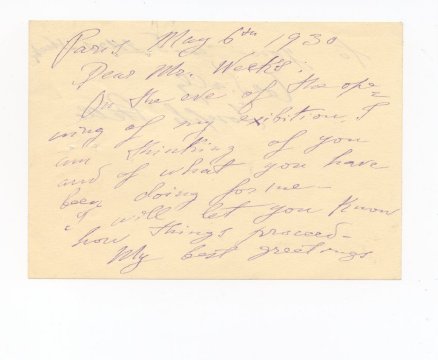 Paris May 6th, 1930
Dear Mr. Weeks:
On the eve of the ope=
ning of my exibition, I
am thinking of you
and of what you have
been doing for me —
I will let you know
how things proceed —
My best greetings